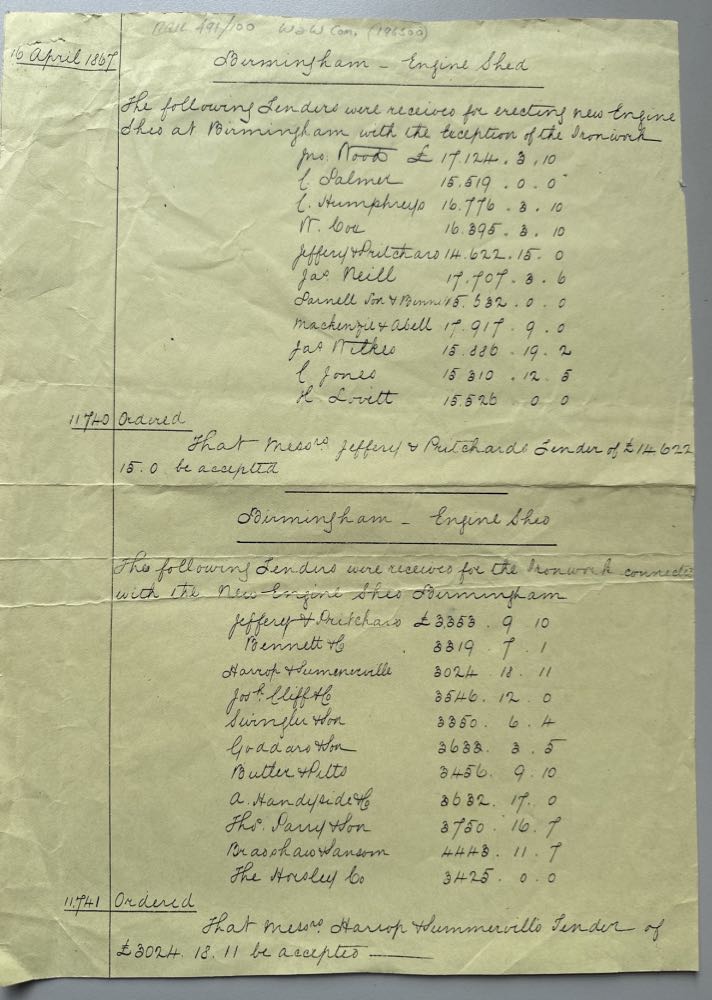 Rail 491/100 W&W Com. (196500)
16 April 1867
Birmingham - Engine Shed
The following Tenders were received for erecting new Engine
Shed at Birmingham with the exception of the Ironwork
Jno. Wood £ 17.124 . 3 . 10
C Palmer 15.519 . 0 . 0
C. Humphreys 16.776 . 3 . 10
W. Cox 16.395 . 3 . 10
Jeffery & Pritchard 14.622 . 15 . 0
Jas Neill 17.707 . 3 . 6
Parnell Son & 15.632 . 0 . 0
Mackenzie & Abell 17.917 . 9 . 0
Jas Wilkes 15.886 . 19 . 2
C Jones 15 310 . 12 . 5
H Lovett 15.526 0 . 0
11740 Ordered
That Messrs Jeffery & Pritchards Tender of £14622
15.0 be accepted
Birmingham - Engine Shed
The following Tenders were received for the Ironwork connected
with the New Engine Shed Birmingham
Jeffery & Pritchard £3353 . 9 10
Bennett & Co 3319 . 7 . 1
Harrop & Sumenerville 3024 18 . 11
Josh. Cliff & Co 3546. 12 . 0
Swingler & Son 3350 . 6 . 4
Goddard & Son 3633. 3 . 5
Butler & Pitts 3456. 9 . 10
A. Handyside & Co 3632. 17. 0
Thos. Parry & Son 3750 . 16. 7
Bradshaw & Sansom 4443. 11 . 7
The Horsley Co 3425 . 0 . 0
11741 Ordered
That Messrs Harrop & Summervills Tender of
£3024. 18. 11 be accepted